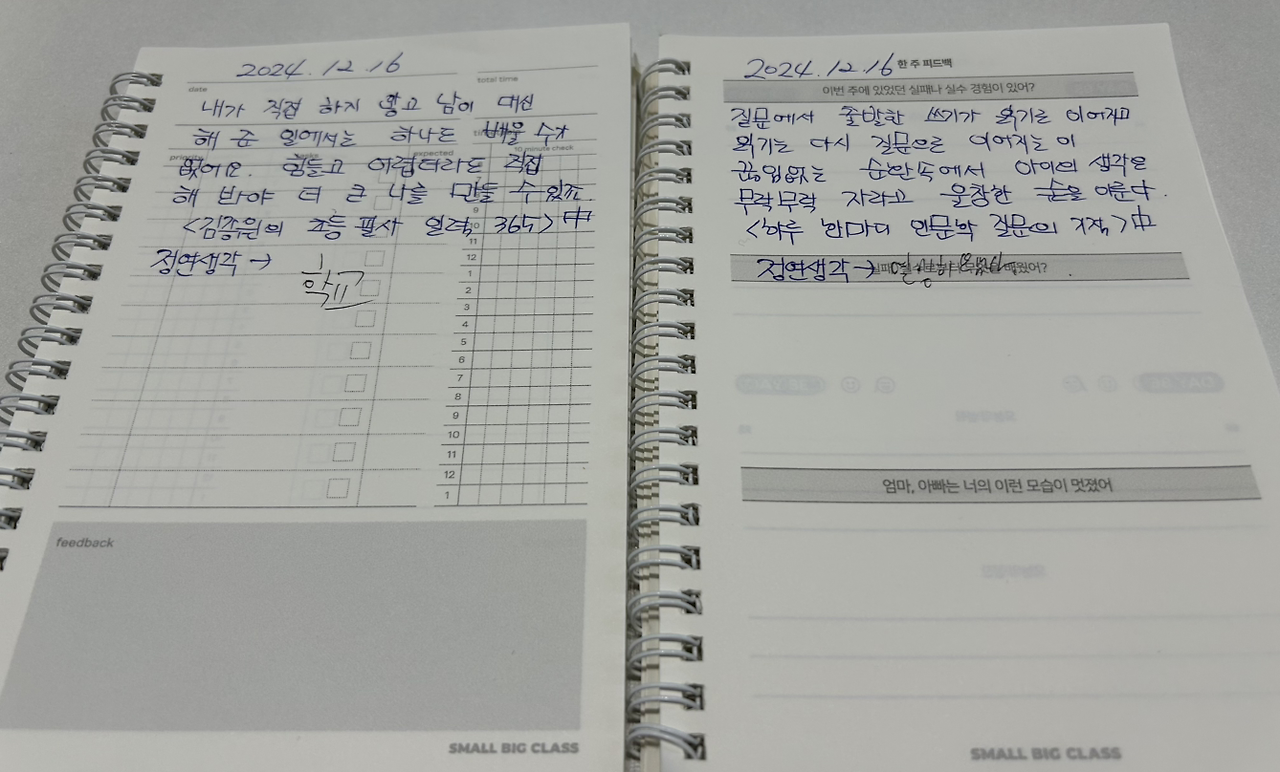 2024.12.16
date
total time
내가 직접 하지 않고 남이 대신
해 준 일에서는 하나도 배울 수가
없어요. 힘들고 어렵더라도 직접
priority
expected
10 minute check
해 봐야 더 큰 나를 만들 수 있죠.
<김종원의 초등 필사 일력 365>中
정연생각→
학교
9
10
11
12
1
2
3
4
5
6
7
8
9
10
11
12
1
feedback
SMALL BIG CLASS
2024.12.16 한 주 피드백
이번 주에 있었던 실패나 실수 경험이 있어?
질문에서 출발한 쓰기가 읽기로 이어지고
읽기는 다시 질문으로 이어지는 이
끊임없는 순환속에서 아이의 생각은
무럭무럭 자라고 울창한 숲을 이룬다.
<하루 한마디 인문학 질문의 기적>中
정연생각→
엄마, 아빠는 너의 이런 모습이 멋졌어
SMALL BIG CLASS